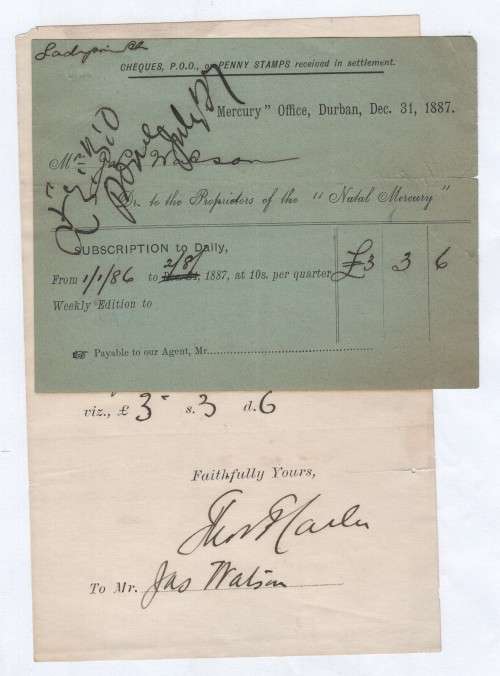 Ladysmith
CHEQUES, P.O.O., or PENNY STAMPS received in settlement.
Mercury" Office, Durban, Dec. 31, 1887.
Mr Jas Watson
Dr. to the Proprietors of the "Natal Mercury"
SUBSCRIPTION to Daily, £3 3 6
2/8/
From 1/1/86 to Dec. 31, 1887, at 10s. per quarter
Weekly Edition to
☞ Payable to our Agent, Mr.
viz., £ 3 s. 3 d. 6
Faithfully Yours,
To Mr. Jas Watson